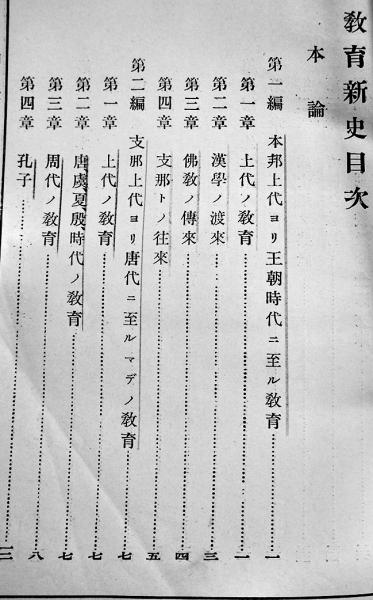 教育新史目次
本論
第一編 本邦上代ヨリ王朝時代ニ至ル教育……一
第一章 上代ノ教育……一
第二章 漢學ノ渡來……三
第三章 佛教ノ傳來……四
第四章 支那トノ往來……五
第二編 支那上代ヨリ唐代ニ至ルマデノ教育……七
第一章 上代ノ教育……七
第二章 唐虞夏殷時代ノ教育……七
第三章 周代ノ教育……八
第四章 孔子……